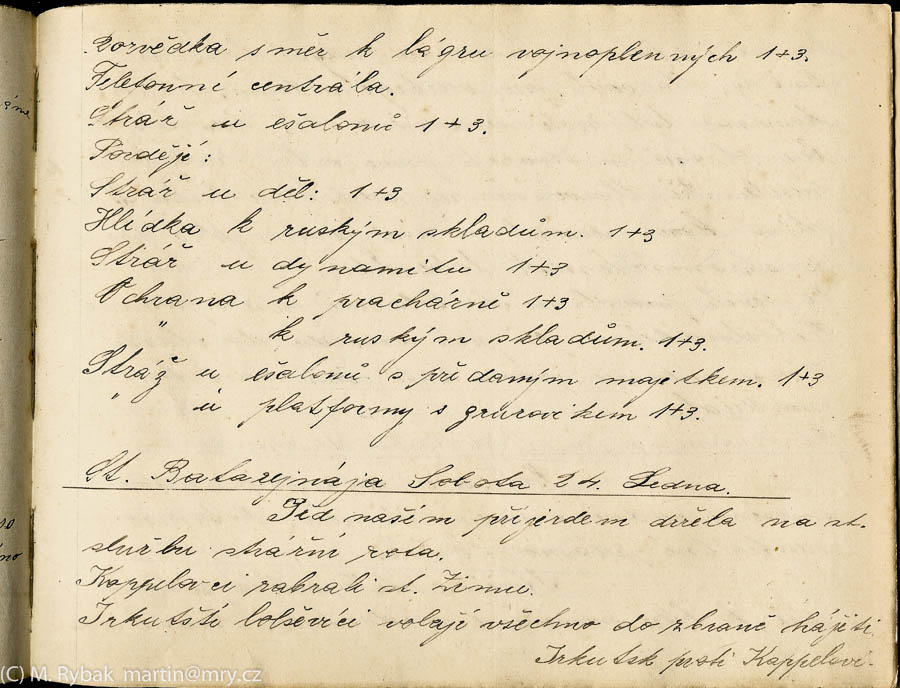 Rozvědka směr k lágru vojnoplenných 1+3.
Telefonní centrála.
Stráž u ešalonů 1+3.
Později:
Stráž u děl: 1+3
Hlídka k ruským skladům. 1+3
Stráž u dynamitu 1+3
Ochrana k prachárně 1+3
" k ruským skladům. 1+3.
Stráž u ešalonů s přidaným majetkem. 1+3
" u platformy s gruzovikem 1+3.
St. Batarejnája Sobota 24. Ledna.
Před naším příjezdem držela na st.
službu strážní rota.
Kappelovci zabrali st. Zimu.
Irkutští bolševici volají všechno do zbraně hájiti
Irkutsk proti Kappelovi.
(C) M. Rybak martin@mry.cz